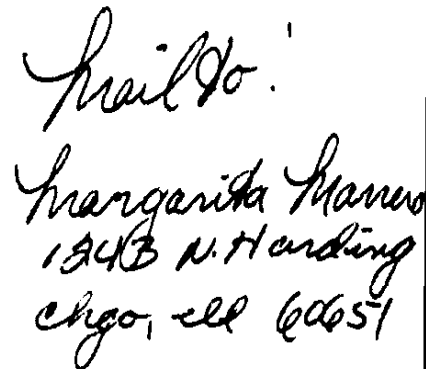 Mail to:
Margarita Marrero
1243 N. Harding
Chgo, Ill 60651